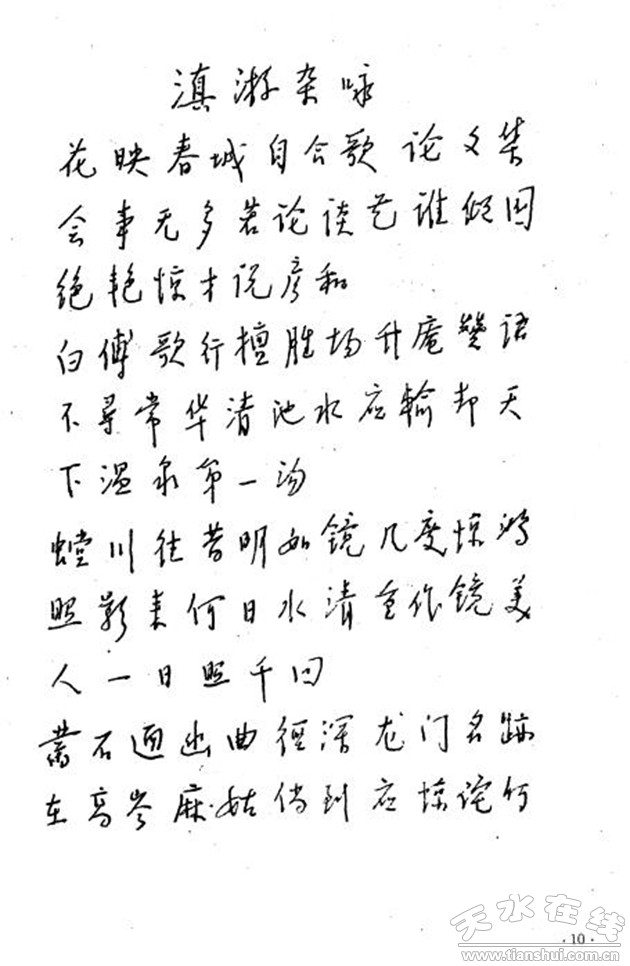 滇游杂咏
花映春城自合歌 论文集
会事无多若论谈艺谁倾国
绝艳惊才说彦和
白傅歌行擅胜场升庵赞语
不寻常华清池水应輸却天
下温泉第一汤
螳川往昔明如镜几度惊鸿
照影来何日水清重作镜美
人一日照千回
凿石通幽曲徑深龙门名跡
在高岑麻姑倘到应惊诧何
天水在线
www.tianshui.com.cn
·10·